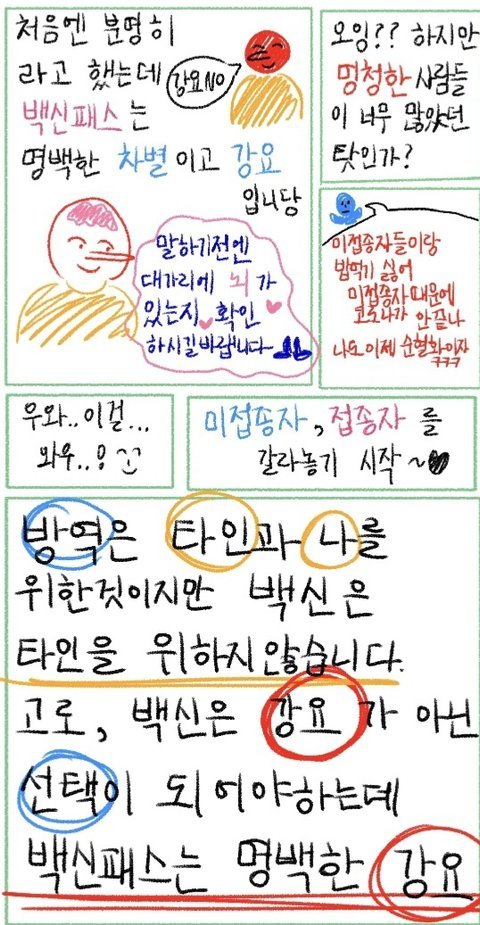 처음엔 분명히
강요NO
라고 했는데
백신패스는
명백한 차별이고 강요
입니당
말하기전엔
대가리에 뇌가
있는지 확인
하시길바랍니다
오잉?? 하지만
멍청한 사람들
이 너무 많았던
탓인가?
미접종자들이랑
밥먹기 싫어
미접종자때문에
코로나가 안끝나
나도 이제 순혈화이자
ㅋㅋㅋ
우와..이걸...
와우..!
미접종자, 접종자를
갈라놓기 시작~
방역은 타인과 나를
위한것이지만 백신은
타인을 위하지않습니다.
고로, 백신은 강요가 아닌
선택이 되어야하는데
백신패스는 명백한 강요